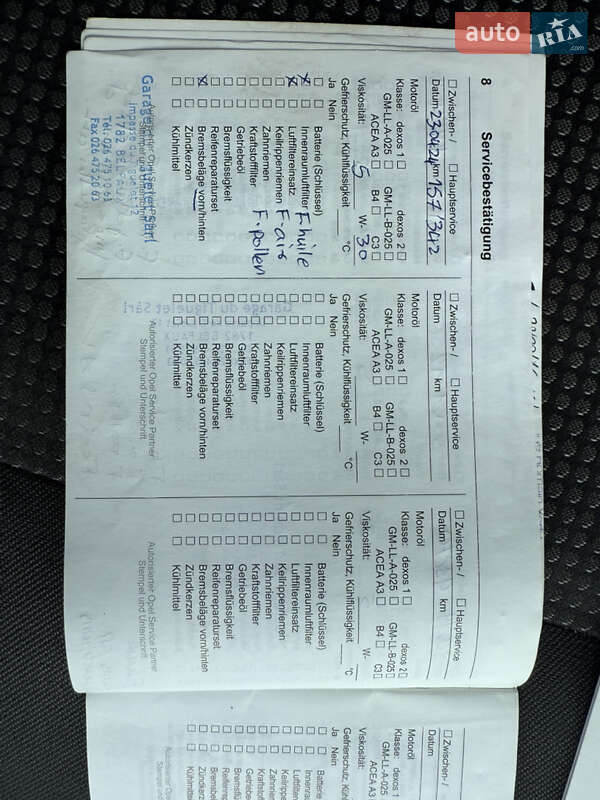 auto RIA.com
8 Servicebestätigung
☐ Zwischen- / ☐ Hauptservice
Datum 230424 km 157/342
Motoröl
Klasse: dexos 1 ☐ dexos 2 ☐
GM-LL-A-025 ☐ GM-LL-B-025 ☐
ACEA A3 ☐ B4 ☐ C3 ☐
Viskosität: 5 W- 30
Gefrierschutz, Kühlflüssigkeit °C
Ja Nein
☐ ☐ Batterie (Schlüssel)
☒ ☐ Innenraumluftfilter F. huile
☒ ☐ Luftfiltereinsatz F-air
☐ ☐ Keilrippenriemen
☐ ☐ Zahnriemen F. pollen
☐ ☐ Kraftstofffilter
☐ ☐ Getriebeöl
☐ ☐ Bremsflüssigkeit
☐ ☐ Reifenreparaturset
☒ ☐ Bremsbeläge vorn/hinten
☐ ☐ Zündkerzen
☐ ☐ Kühlmittel
Autorisierter Opel Service Partner
Stempel und Unterschrift
Sàrl
1782
Tél. 026 475
Fax 026 475
☐ Zwischen- / ☐ Hauptservice
Datum km
Motoröl
Klasse: dexos 1 ☐ dexos 2 ☐
GM-LL-A-025 ☐ GM-LL-B-025 ☐
ACEA A3 ☐ B4 ☐ C3 ☐
Viskosität: W-
Gefrierschutz, Kühlflüssigkeit °C
Ja Nein
☐ ☐ Batterie (Schlüssel)
☐ ☐ Innenraumluftfilter
☐ ☐ Luftfiltereinsatz
☐ ☐ Keilrippenriemen
☐ ☐ Zahnriemen
☐ ☐ Kraftstofffilter
☐ ☐ Getriebeöl
☐ ☐ Bremsflüssigkeit
☐ ☐ Reifenreparaturset
☐ ☐ Bremsbeläge vorn/hinten
☐ ☐ Zündkerzen
☐ ☐ Kühlmittel
Autorisierter Opel Service Partner
Stempel und Unterschrift
☐ Zwischen- / ☐ Hauptservice
Datum km
Motoröl
Klasse: dexos 1 ☐ dexos 2 ☐
GM-LL-A-025 ☐ GM-LL-B-025 ☐
ACEA A3 ☐ B4 ☐ C3 ☐
Viskosität: W-
Gefrierschutz, Kühlflüssigkeit °C
Ja Nein
☐ ☐ Batterie (Schlüssel)
☐ ☐ Innenraumluftfilter
☐ ☐ Luftfiltereinsatz
☐ ☐ Keilrippenriemen
☐ ☐ Zahnriemen
☐ ☐ Kraftstofffilter
☐ ☐ Getriebeöl
☐ ☐ Bremsflüssigkeit
☐ ☐ Reifenreparaturset
☐ ☐ Bremsbeläge vorn/hinten
☐ ☐ Zündkerzen
☐ ☐ Kühlmittel
Autorisierter Opel Service Partner
Stempel und Unterschrift
☐ Zwischen- /
Datum
Motoröl
Klasse: dexos 1
GM-LL-A-025
ACEA A3
Viskosität:
Gefrierschutz, Kühlflüssig
Ja Nein
☐ ☐ Batterie
☐ ☐ Innenraum
☐ ☐ Luftfilter
☐ ☐ Keilrippen
☐ ☐ Zahnrie
☐ ☐ Kraftstof
☐ ☐ Getriebe
☐ ☐ Bremsflü
☐ ☐ Reifenrep
☐ ☐ Bremsbe
☐ ☐ Zündkerz
☐ ☐ Kühlmitte
Autorisierter Opel
Stempel und